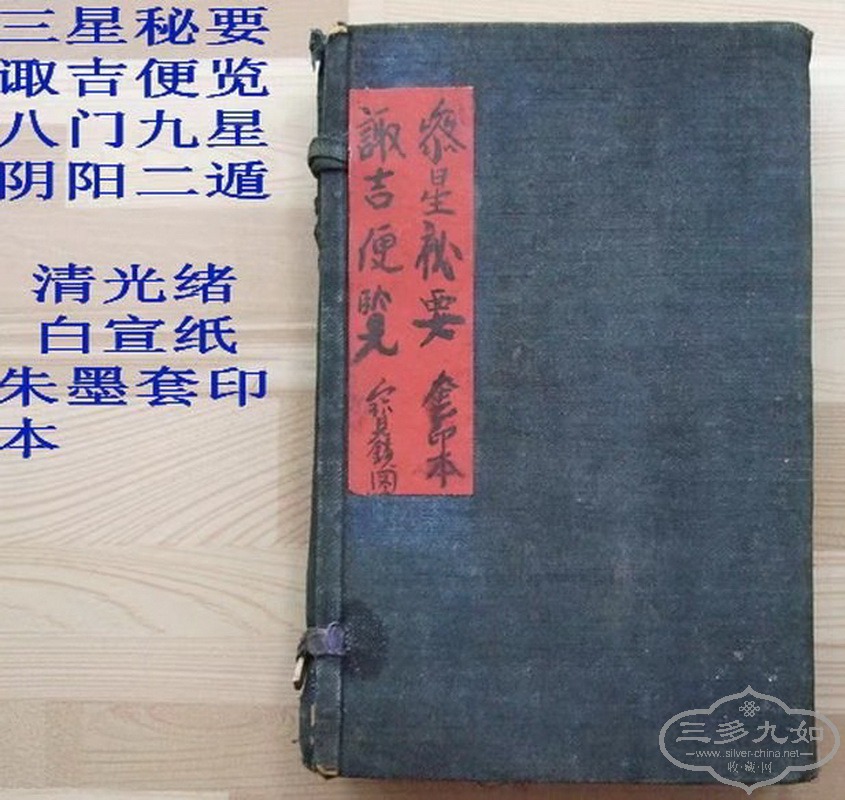 三星秘要
诹吉便览
八门九星
阴阳二遁
清光绪
白宣纸
朱墨套印
本
叅星祕要 套印本
諏吉便覽 寳鏡圖
三多九如
www.silver-china.net
收·藏·网